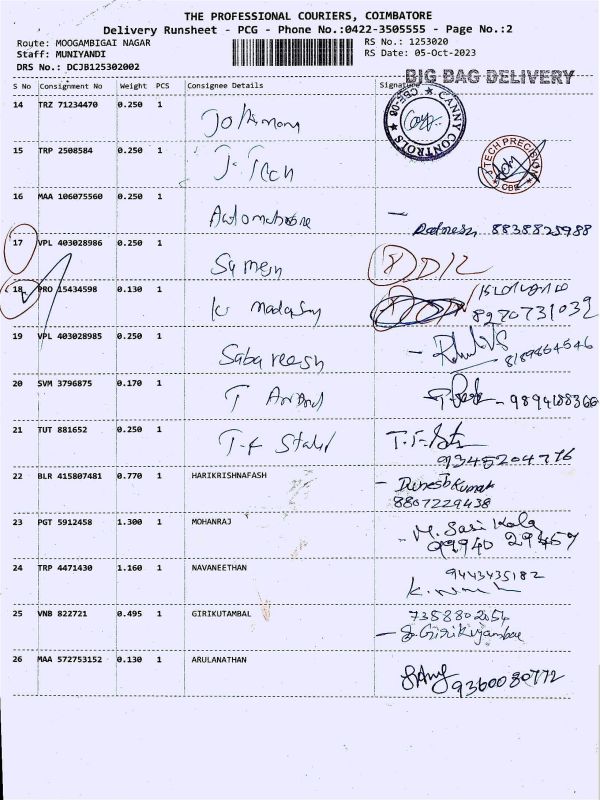 THE PROFESSIONAL COURIERS, COIMBATORE
Delivery Runsheet - PCG - Phone No.:0422-3505555 - Page No.:2
Route: MOOGAMBIGAI NAGAR
RS No.: 1253020
Staff: MUNIYANDI
RS Date: 05-Oct-2023
DRS No.: DCJB125302002
BIG BAG DELIVERY
S No Consignment No Weight PCS Consignee Details Signature
14 TRZ 71234470 0.250 1
CANNY CONTROLS ★ CBE-06 ★
15 TRP 2508584 0.250 1 J-Tech
J TECH PRECISION
CBE
16 MAA 106075560 0.250 1
8838825988
17 VPL 403028986 0.250 1
D/L
18 PRO 15434598 0.130 1
8270731032
19 VPL 403028985 0.250 1 Sabareesh
8189854546
20 SVM 3796875 0.170 1 T Anand
9894188366
21 TUT 881652 0.250 1
9345204776
22 BLR 415807481 0.770 1 HARIKRISHNAFASH Dinesh Kumar
8807229438
23 PGT 5912458 1.300 1 MOHANRAJ M. Sasi Kala
99940 29457
24 TRP 4471430 1.160 1 NAVANEETHAN 9443435182
25 VNB 822721 0.495 1 GIRIKUTAMBAL 7358802054
26 MAA 572753152 0.130 1 ARULANATHAN
9360080772